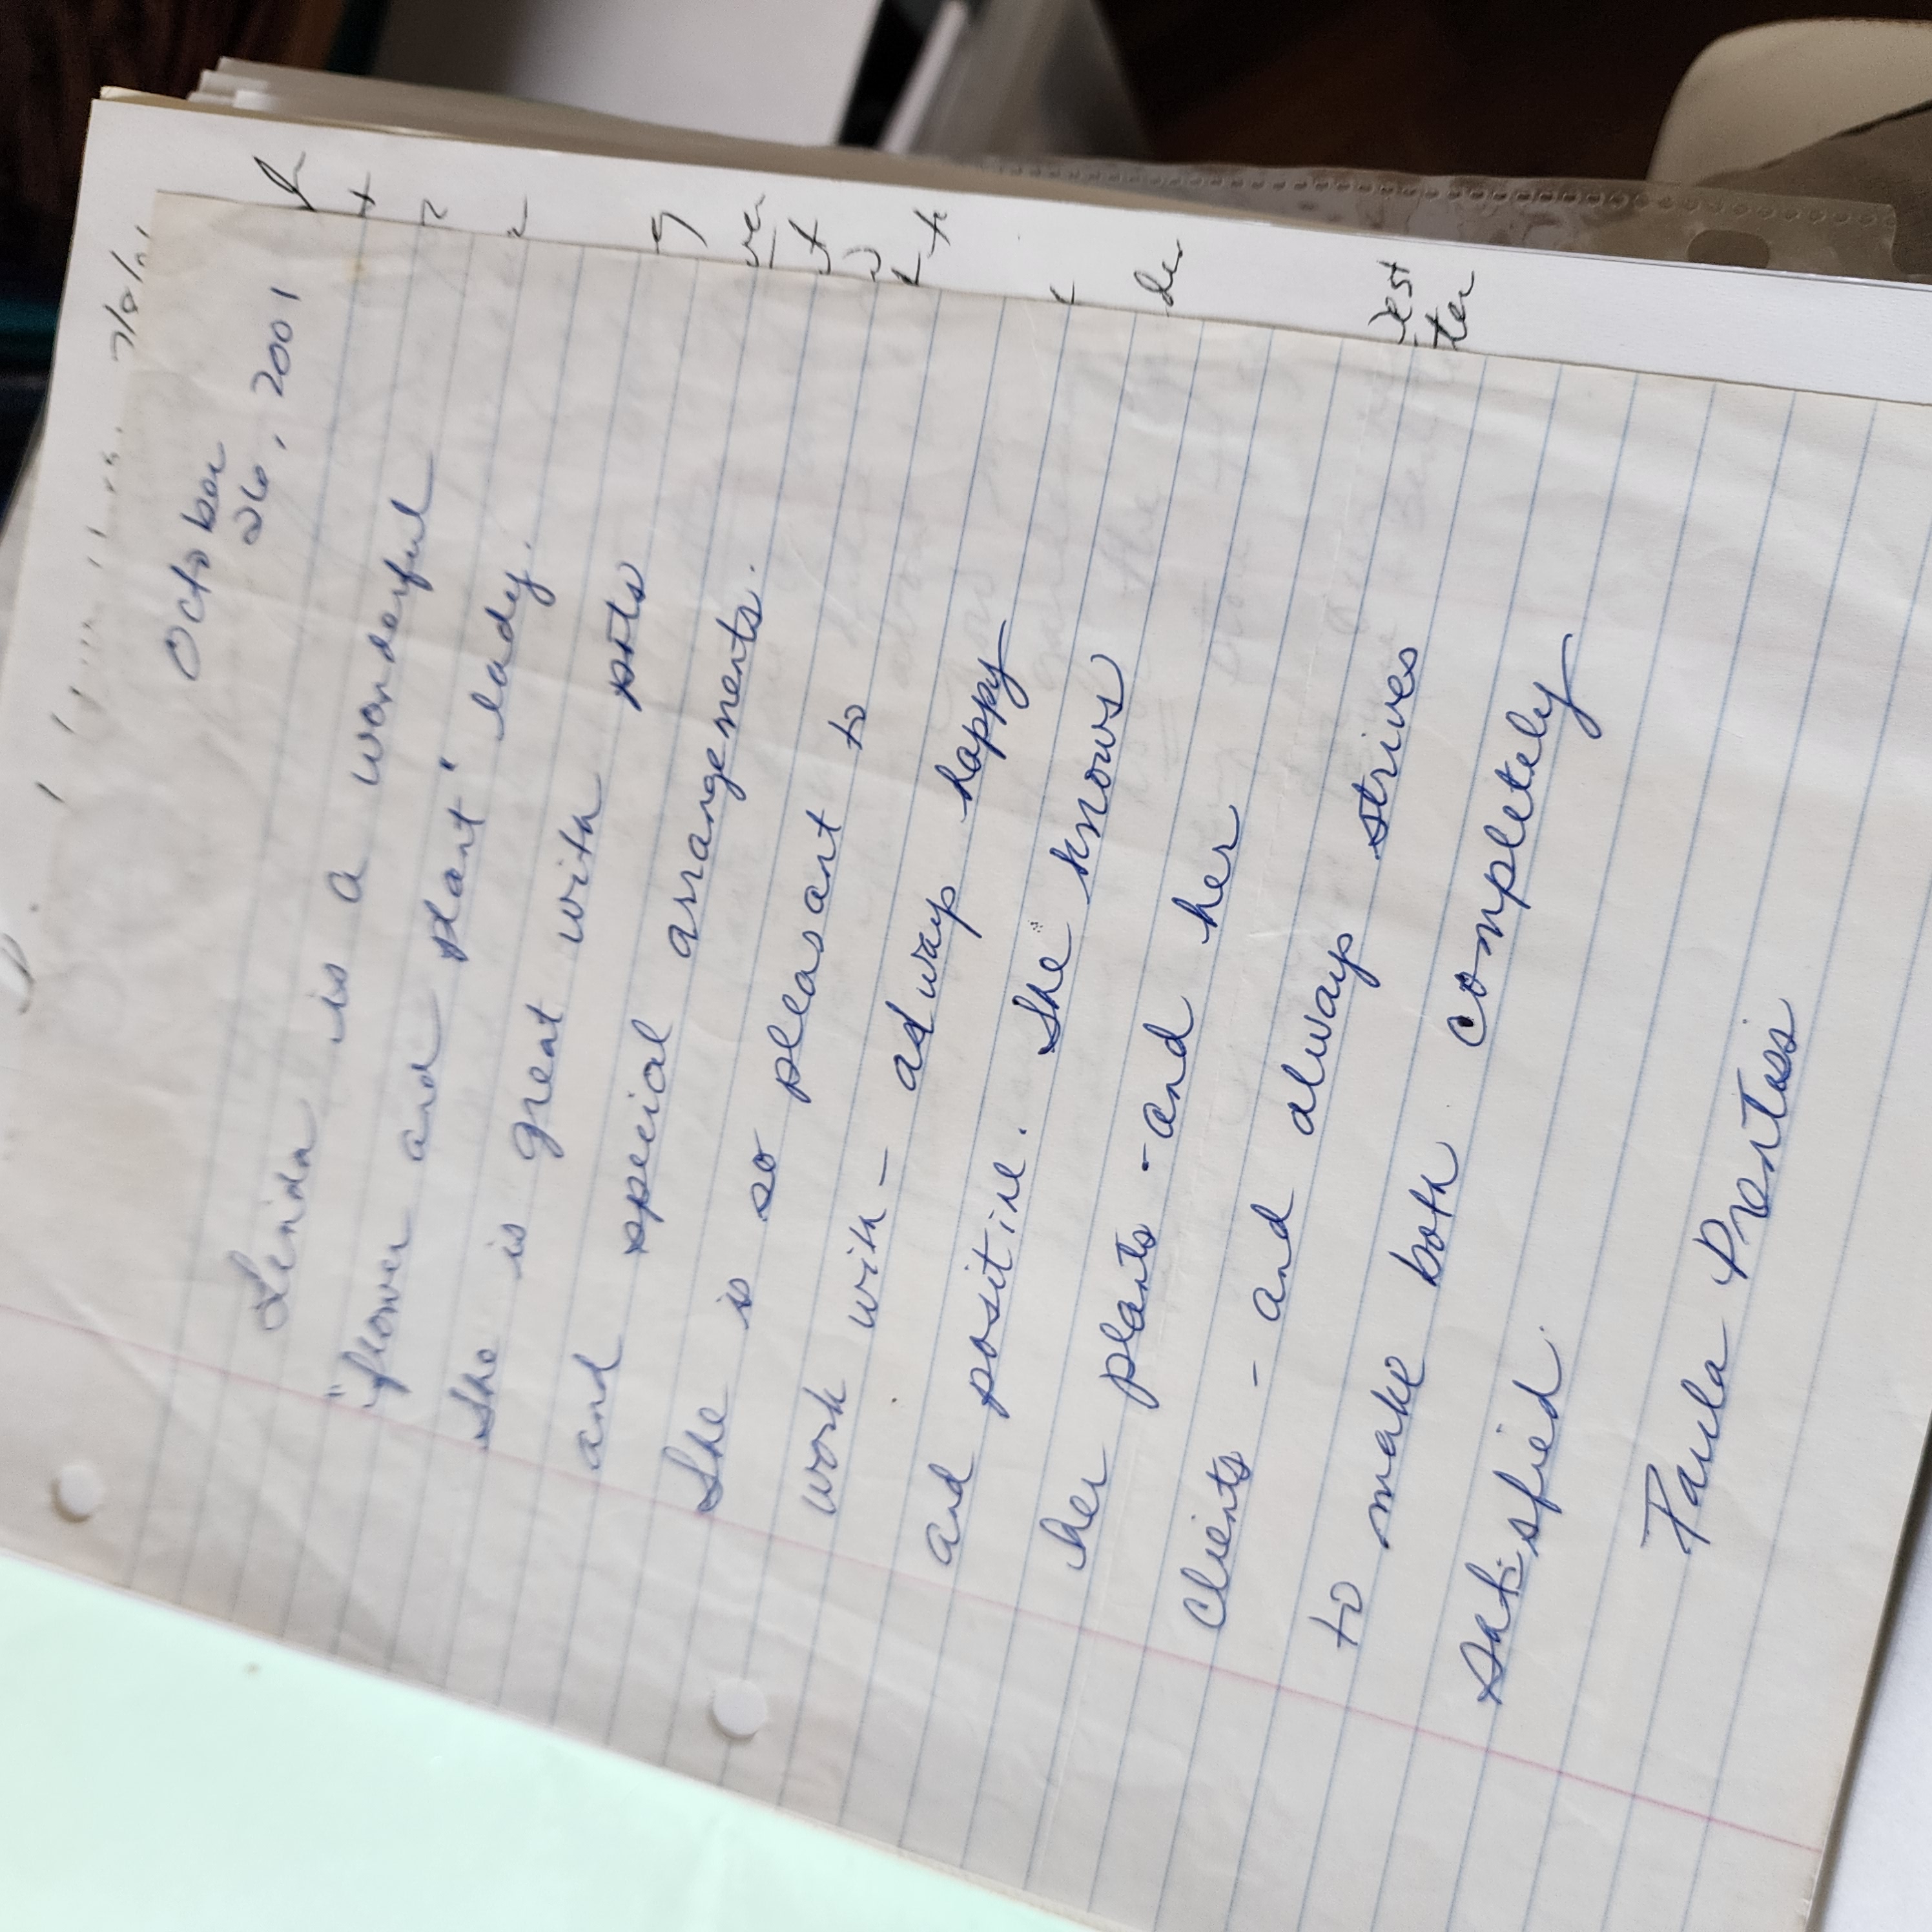 7/8/01
October
26, 2001
Linda is a wonderful
"flower and plant" lady.
She is great with pots
and special arrangements.
She is so pleasant to
work with - always happy
and positive. She knows
her plants - and her
clients - and always strives
to make both completely
satisfied.
Paula Prentiss